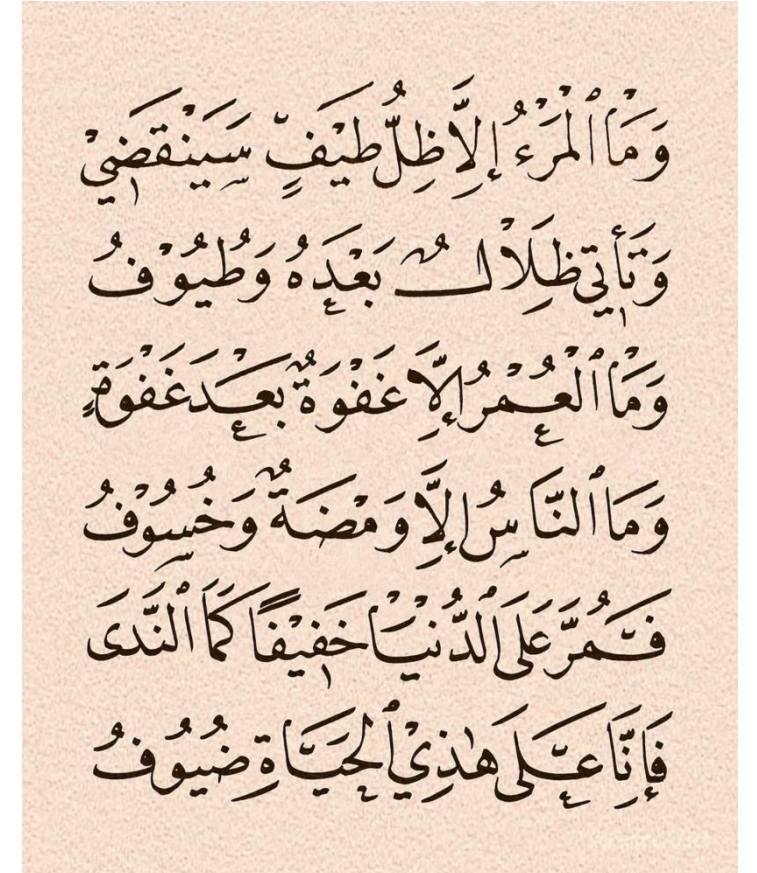 وَمَا ٱلْمَرْءُ إِلَّا ظِلُّ طَيْفٍ سَيَنْقَضِيْ
وَتَأْتِي ظِلَالٌ بَعْدَهُ وَطُيُوْفُ
وَمَا ٱلْعُمْرُ إِلَّا غَفْوَةٌ بَعْدَ غَفْوَةٍ
وَمَا ٱلنَّاسُ إِلَّا وَمْضَةٌ وَخُسُوْفُ
فَمُرَّ عَلَى ٱلدُّنْيَا خَفِيْفًا كَمَا ٱلنَّدَى
فَإِنَّا عَلَى هَٰذِيْ ٱلْحَيَاةِ ضُيُوْفُ